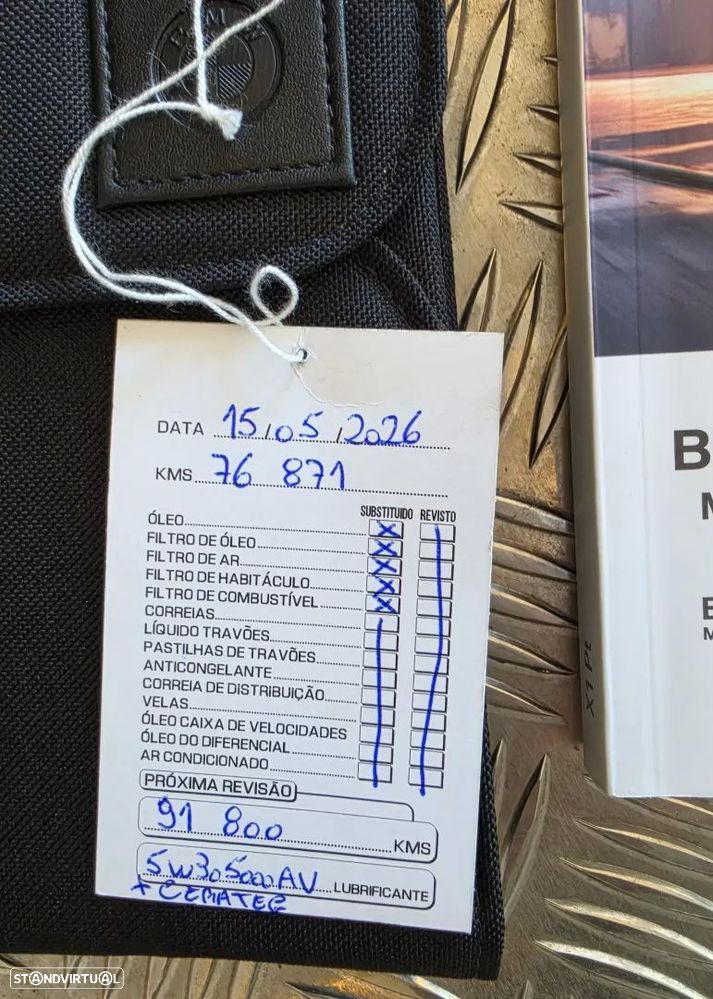 BMW
DATA 15/05/2026
KMS 76 871
SUBSTITUIDO REVISTO
ÓLEO X
FILTRO DE ÓLEO X
FILTRO DE AR X
FILTRO DE HABITÁCULO X
FILTRO DE COMBUSTÍVEL X
CORREIAS
LÍQUIDO TRAVÕES
PASTILHAS DE TRAVÕES
ANTICONGELANTE
CORREIA DE DISTRIBUIÇÃO
VELAS
ÓLEO CAIXA DE VELOCIDADES
ÓLEO DO DIFERENCIAL
AR CONDICIONADO
PRÓXIMA REVISÃO
91 800 KMS
5W30 5000 AV LUBRIFICANTE
+ CERATEC
X1 Pt
B
M
B
M
STANDVIRTUAL